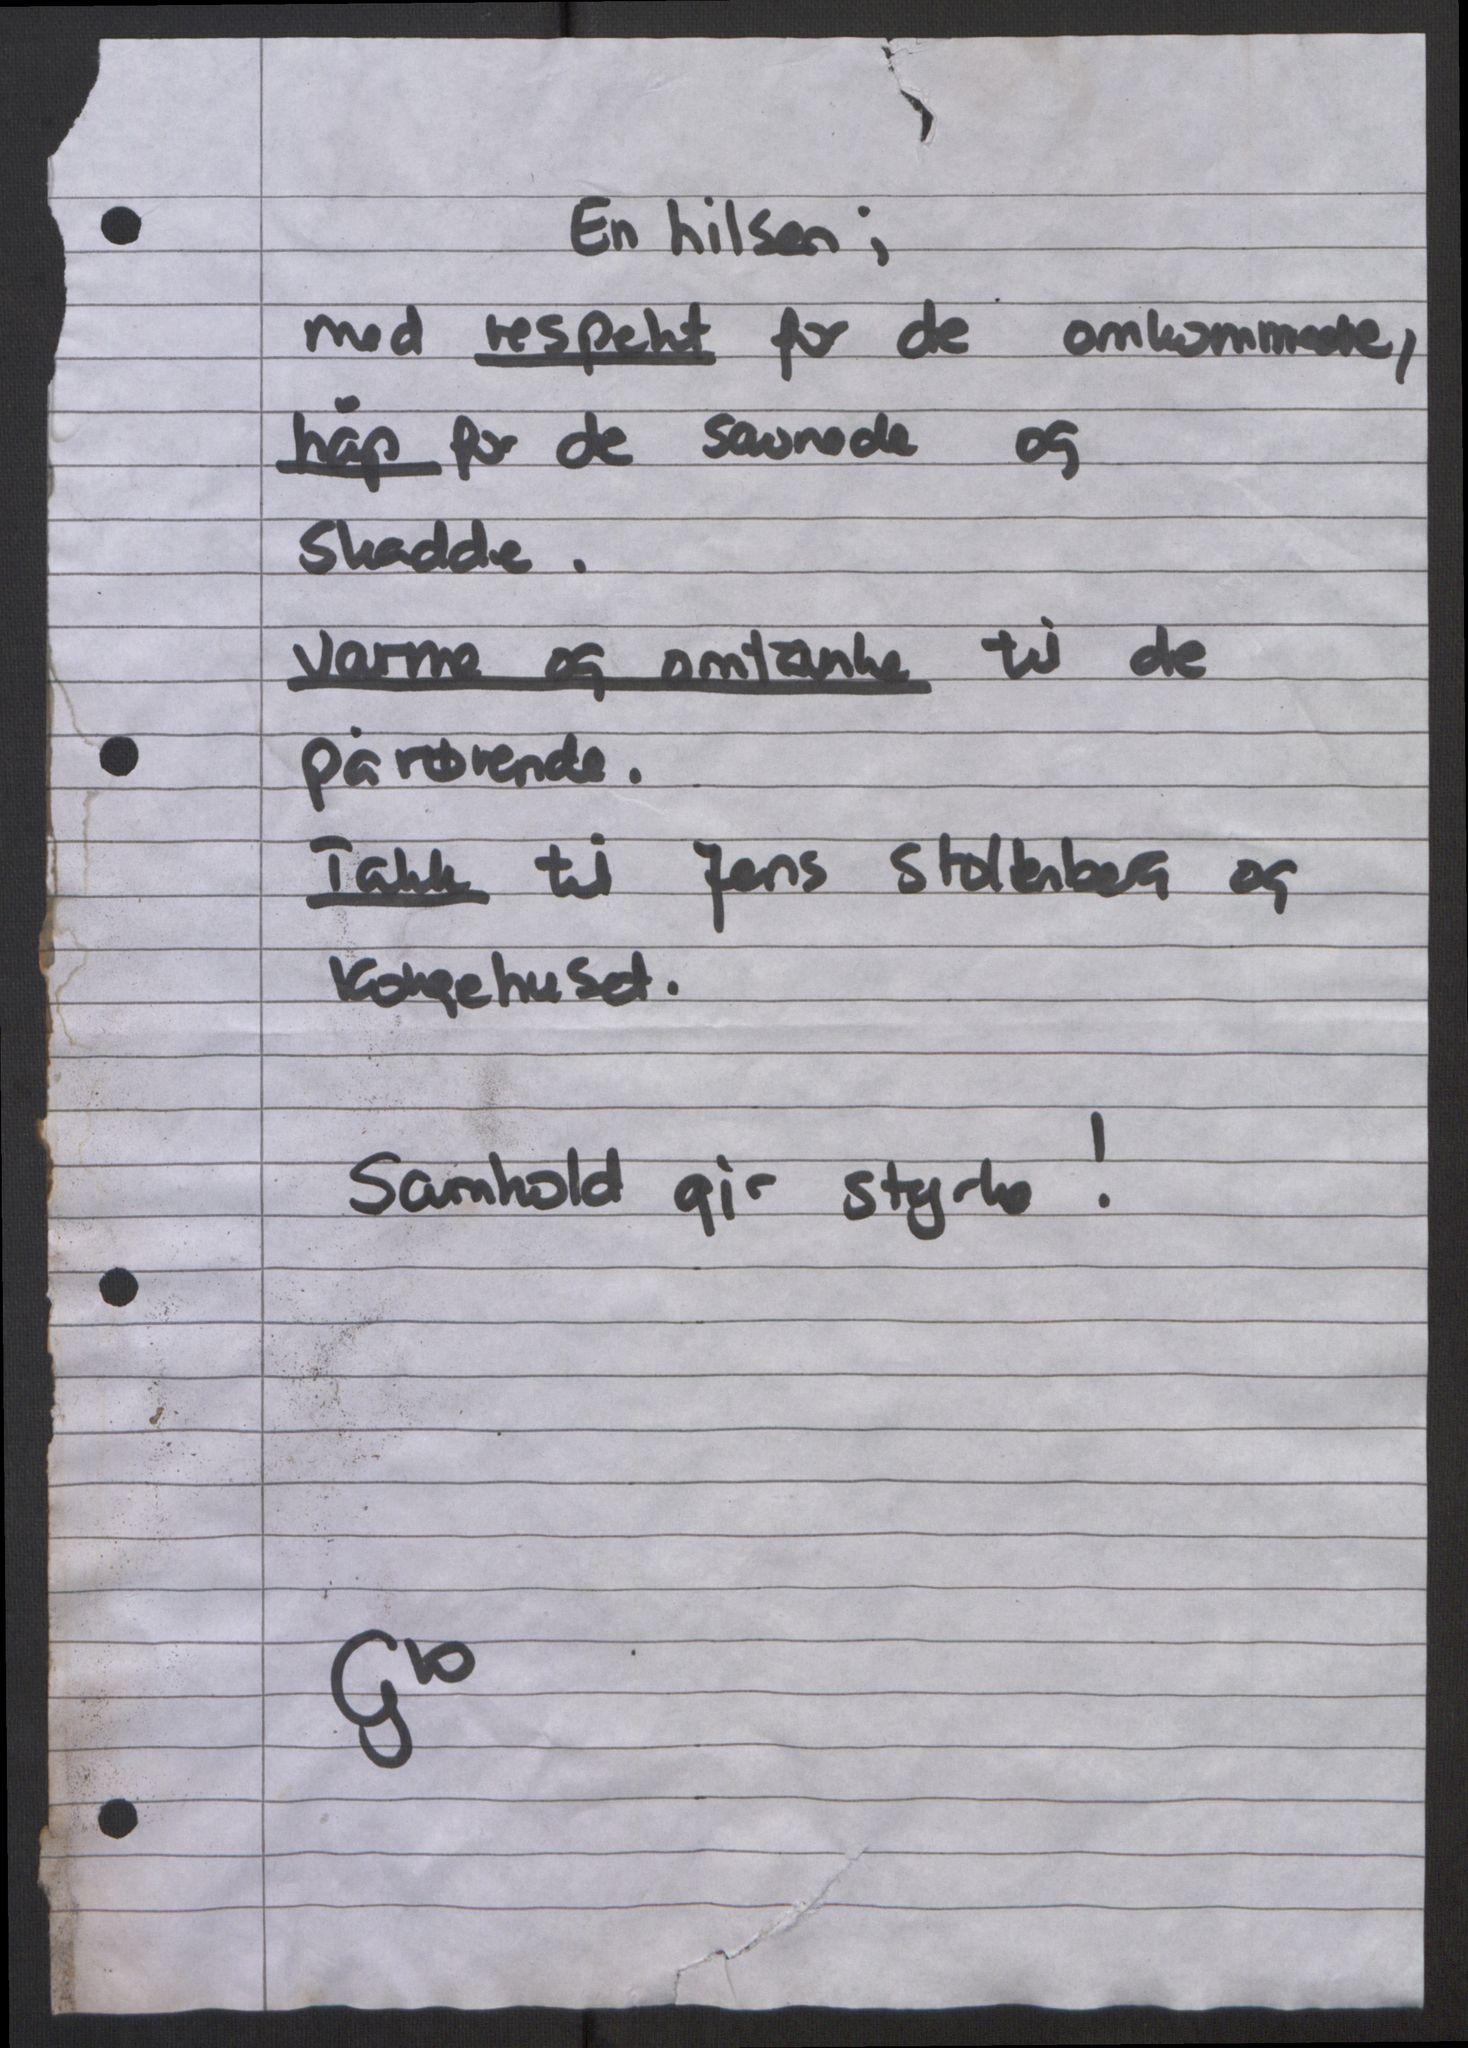 En hilsen;
med respekt for de omkommede,
håp for de savnede og
Skadde.
Varme og omtanke til de
pårørende.
Takk til Jens Stoltenberg og
Kongehuset.
Samhold gir styrke!
Gro